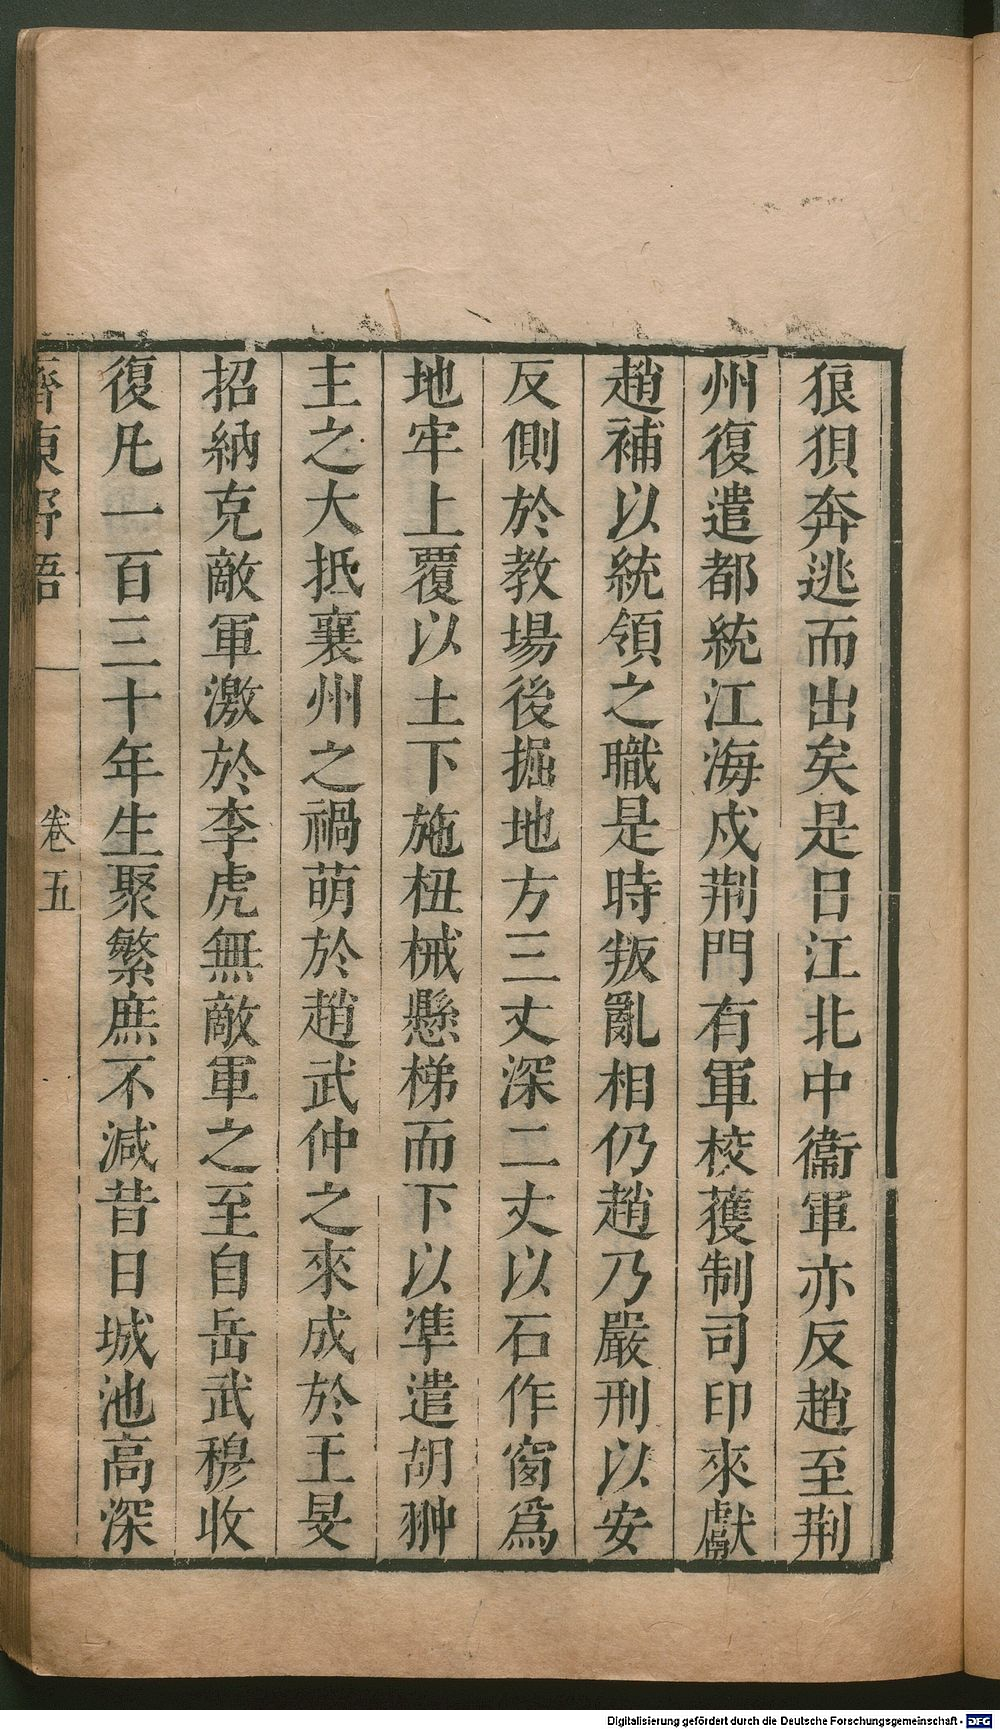 狼狽奔逃而出矣是日江北中衞軍亦反趙至荆
州復遣都統江海戍荆門有軍校獲制司印來獻
趙補以統領之職是時叛亂相仍趙乃嚴刑以安
反側於教場後掘地方三丈深二丈以石作窗爲
地牢上覆以土下施杻械懸梯而下以凖遣胡翀
主之大抵襄州之禍萌於趙武仲之來成於王旻
招納克敵軍激於李虎無敵軍之至自岳武穆收
復凡一百三十年生聚繁庶不減昔日城池高深
齊東野語
卷五
Digitalisierung gefördert durch die Deutsche Forschungsgemeinschaft - DFG